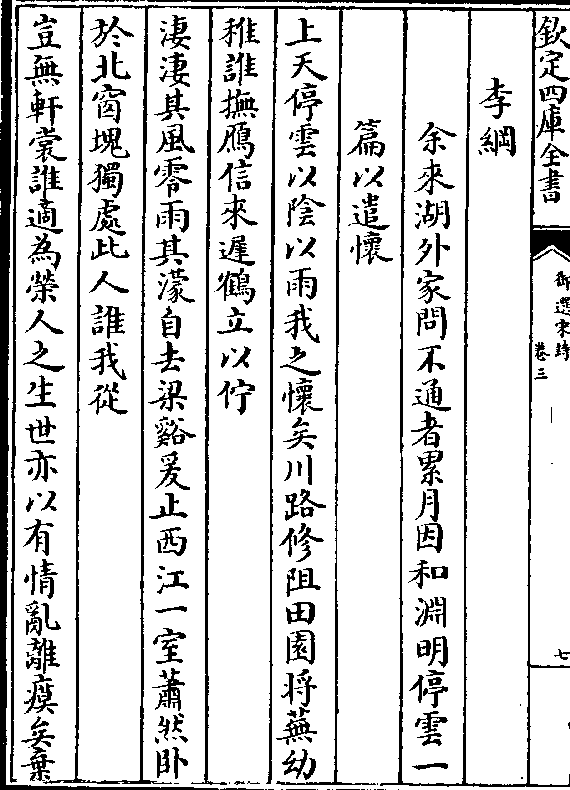 欽定四庫全書
御選宋詩
卷三
七
李綱
余來湖外家問不通者累月因和淵明停雲一
篇以遣懷
上天停雲以陰以雨我之懷矣川路修阻田園將蕪幼
稚誰撫鴈信來遲鶴立以佇
淒淒其風零雨其濛自去梁谿爰止西江一室蕭然卧
於北窗塊獨處此人誰我從
豈無軒裳誰適為榮人之生世亦以有情亂離瘼矣棄